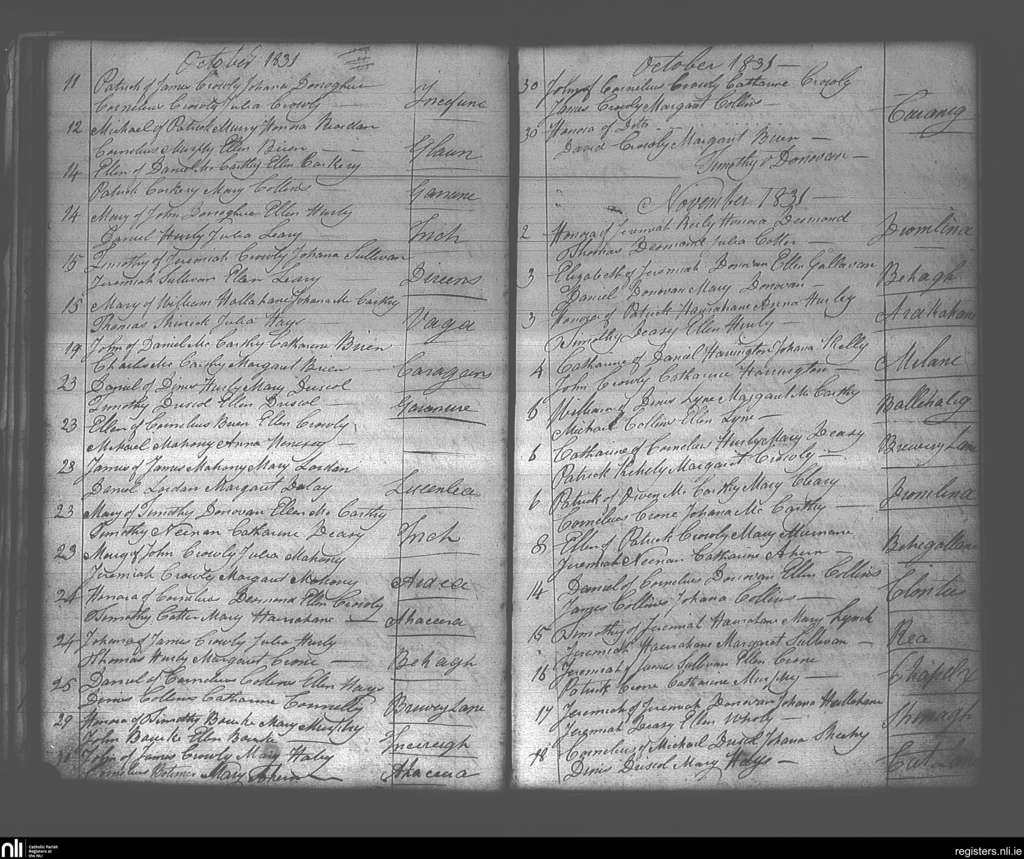 October 1831
11 Patrick of James Crowly Johana Donoghue
Cornelius Crowly Julia Crowly
12 Michael of Patrick Murry Honora Reardan
Cornelius Murphy Ellen Brien Glaun
14 Ellen of Daniel Mc Carthy Ellen Corkery
Patrick Corkery Mary Collins Garrane
14 Mary of John Donoghue Ellen Hurly
Daniel Hurly Julia Leary Inch
15 Timothy of Jeremiah Crowly Johana Sullivan
Jeremiah Sullivan Ellen Leary Direens
15 Mary of William Hallahan Johana Mc Carthy
Thomas Julia Hays Vaga
19 John of Daniel Mc Carthy Catharine Brien
Charles Mc Carthy Margaret Brien
23 Daniel of Denis Hurly Mary Driscol
Timothy Driscol Ellen Driscol
23 Ellen of Cornelius Brien Ellen Crowly
Michael Mahony Anna
23 James of James Mahony Mary Lordan
Daniel Lordan Margaret Dalay
23 Mary of Timothy Donovan Ellen Mc Carthy
Timothy Neenan Catharine Deasy Inch
23 Mary of John Crowly Julia Mahony
Jeremiah Crowly Margaret Mahony
24 Honora of Cornelius Desmond Ellen Crowly
Timothy Cotter Mary Hanrahane Ahacera
24 Johana of James Crowly Julia Hurly
Thomas Hurly Margaret Crone Behagh
25 Daniel of Cornelius Collins Ellen Hays
Denis Collins Catharine Connelly Brewery Lane
29 Honora of Timothy Bourke Mary Murphy
John Bourke Ellen Bourke
John of James Crowly Mary Haly
Cornelius Mary Ahern Ahacera
October 1831
30 John of Cornelius Crowly Catharine Crowly
James Crowly Margaret Collins
30 Honora of Ditto
David Crowly Margaret Brien
Timothy O Donovan
November 1831
2 Honora of Jeremiah Reily Honora Desmond Dromlina
Thomas Desmond Julia Cotter
3 Elizabeth of Jeremiah Donovan Ellen Gallavan Behagh
Daniel Donovan Mary Donovan
3 Honora of Patrick Hanrahane Anna Hurley
Timothy Deasy Ellen Hurly
4 Catharine of Daniel Harrington Johana Kelly Milane
John Crowly Catharine Harrington
6 William of Denis Lyne Margaret Mc Carthy Ballihalig
Michael Collins Ellen Lyne
6 Catharine of Cornelius Hurly Mary Deasy Brewery Lane
Patrick Kehely Margaret Crowly
6 Patrick of Owen Mc Carthy Mary Cleary Dromlina
Cornelius Crone Johana Mc Carthy
8 Ellen of Patrick Crowly Mary Murnane
Jeremiah Neenan Catharine Ahern
14 Daniel of Cornelius Donovan Ellen Collins
James Collins Johana Collins
15 Timothy of Jeremiah Hanrahane Mary Lynch Rea
Jeremiah Hanrahane Margaret Sullivan
16 Jeremiah of James Sullivan Ellen Crone
Patrick Crone Catharine Murphy
17 Jeremiah of Jeremiah Donovan Johana Hallahane
Jeremiah Deasy Ellen Wholy
18 Cornelius of Michael Driscol Johana Sheehy
Denis Driscol Mary Hays
nli Catholic Parish Registers at the NLI
registers.nli.ie